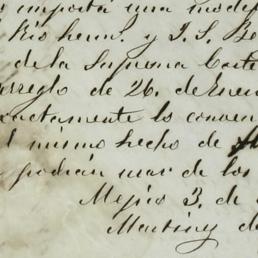 importá una modif
Rio herm. y J. S. Be
de la Suprema Corte
arreglo de 26. de Enero
xactamente lo conven
l mismo hecho de
podrán usar de los
Mejico 3. de
Martinz de